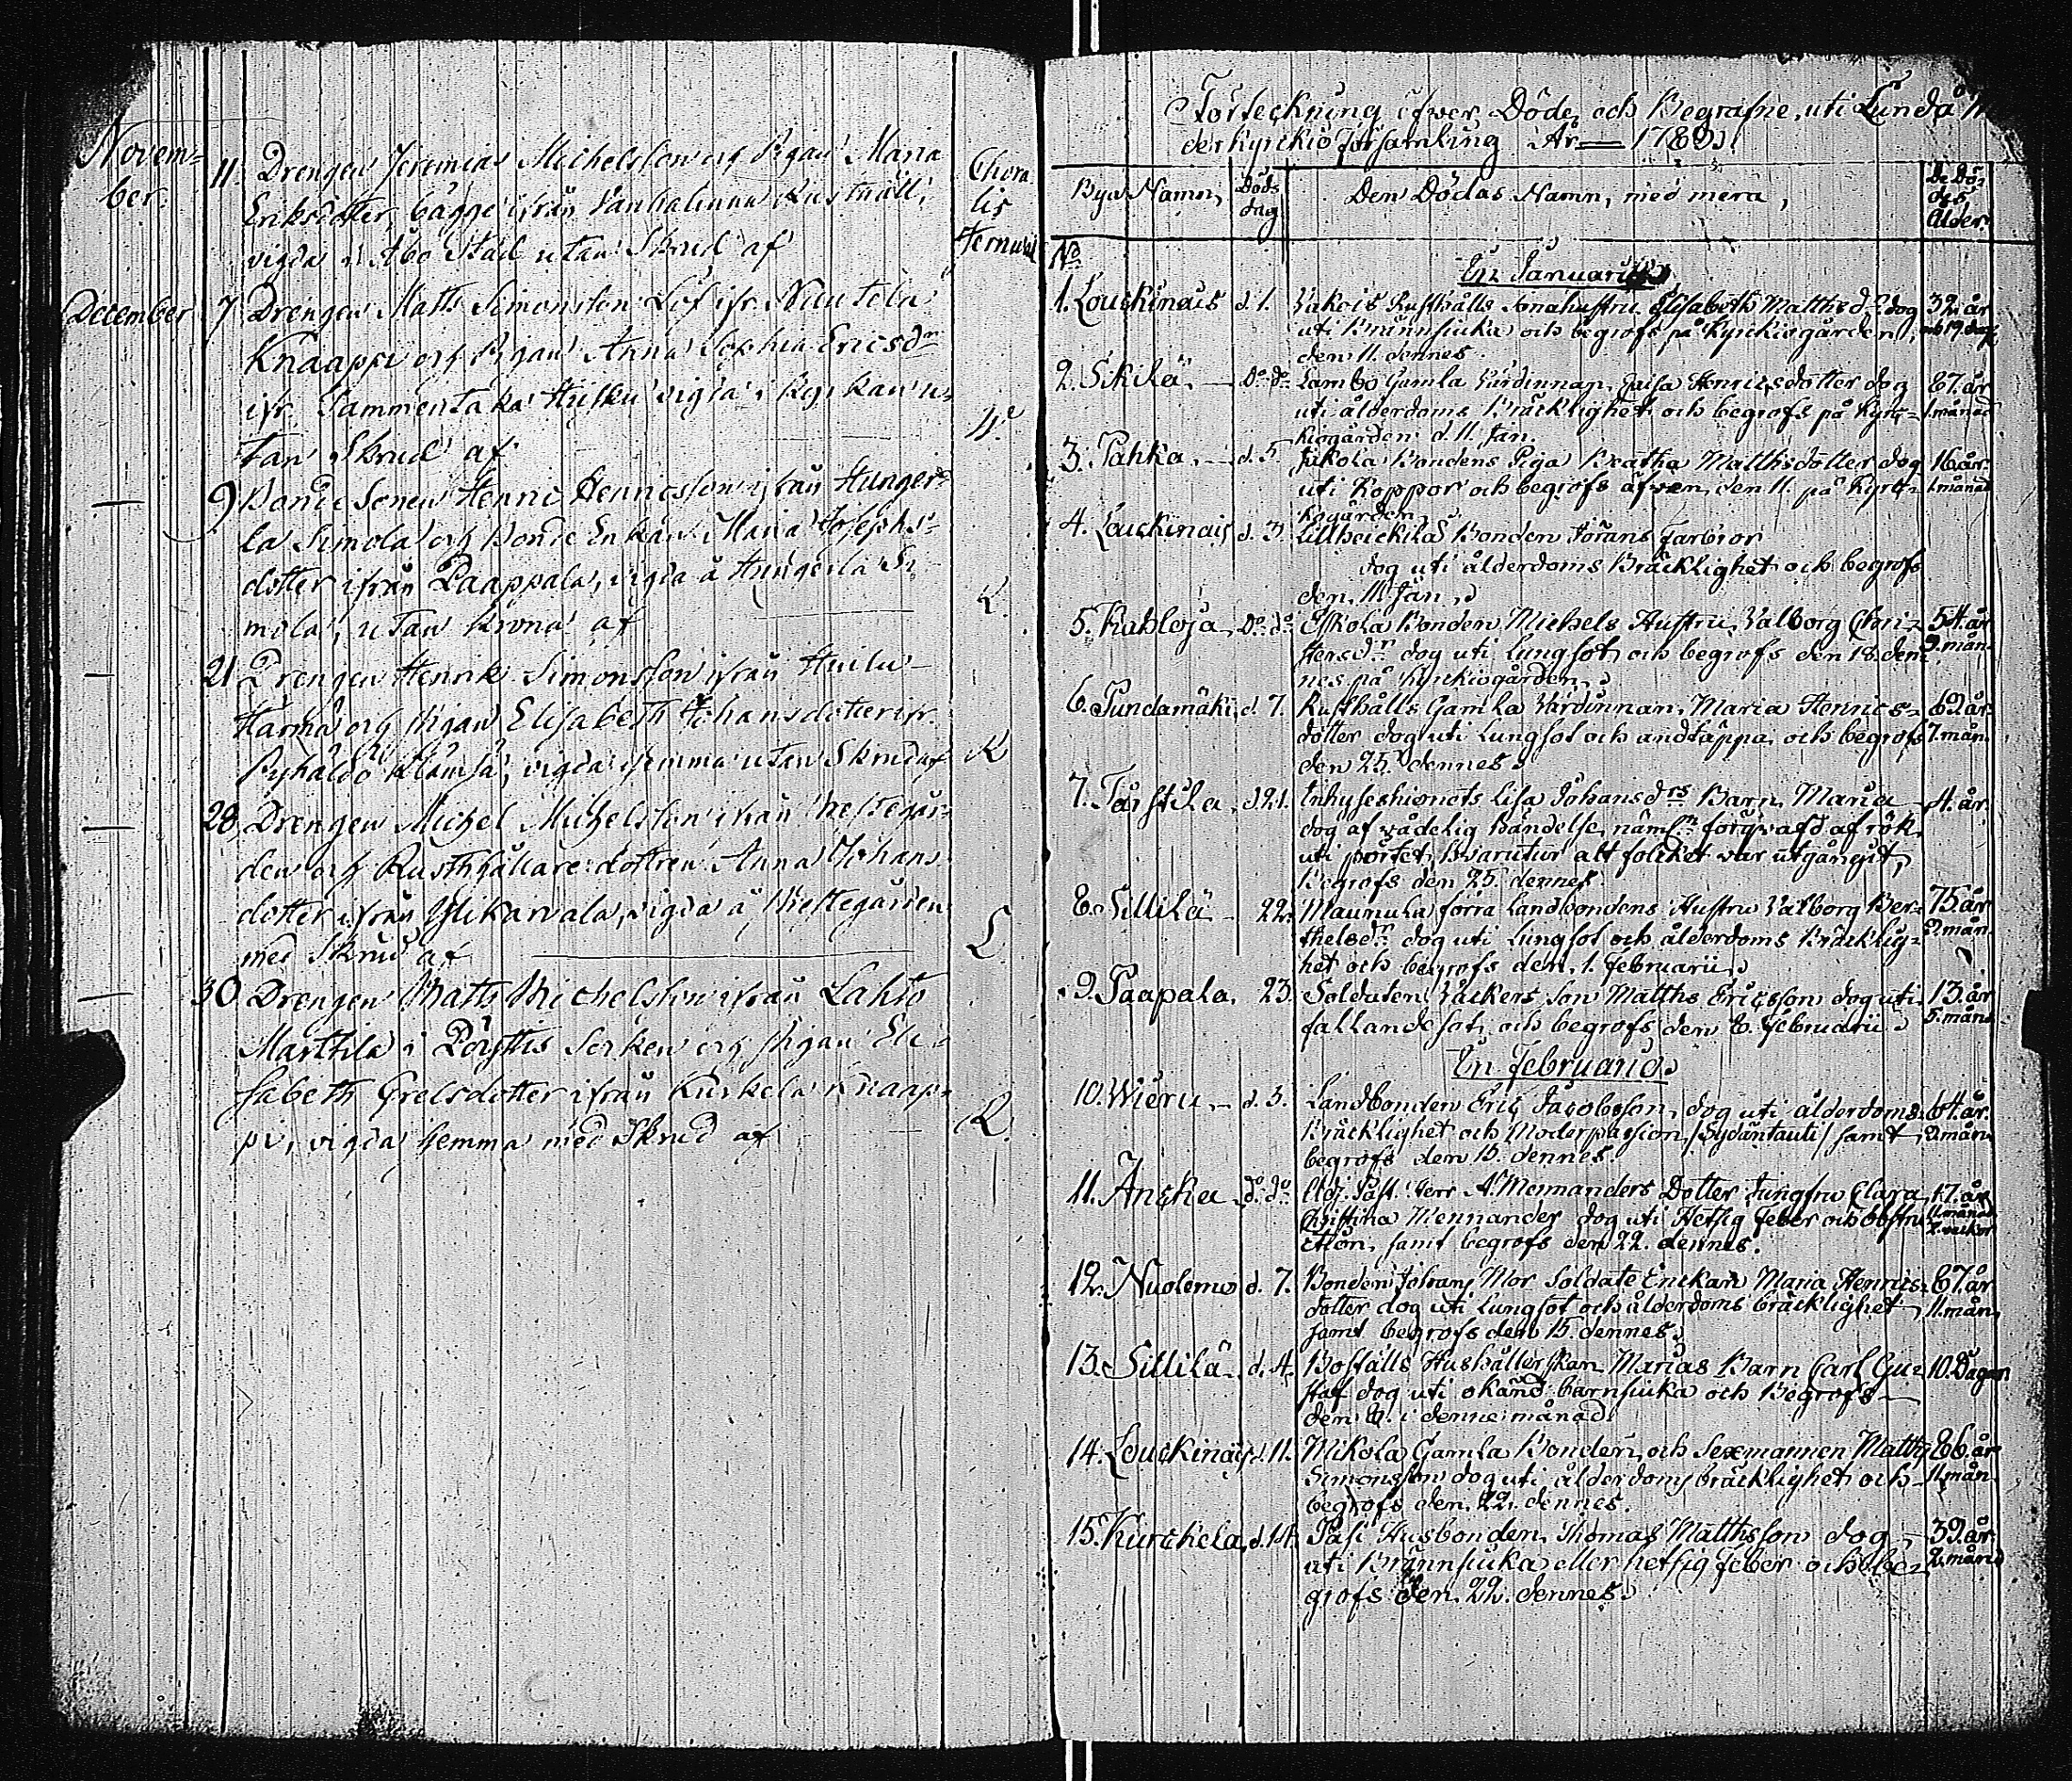 Novem-
ber.
11. Drengen Jeremias Michelsson och Pigan Maria
Eriksdotter, bägge ifrån Vanhalinna Rusthåll,
vigda i Åbo Stad utan Skrud af
Chora
lis
Ternwal
December 7 Drengen Matts Simonsson Löf ifr. Nautela
Knaappi och Pigan Anna Sophia Ericsdr
ifr. Tammentaka vigda i Kyrkan u-
tan Skrud af
9 Bonde Sonen Henric Henricsson ifrån Hunger-
la Simola och Bonde Enkan Maria Josephs-
dotter ifrån Paappala, vigda å Hungerla Si-
mola, utan krona af L.
21 Drengen Henrik Simonsson ifrån
Härmä och Pigan Elisabeth Johansdotter ifr.
Pyhaldo Klämsä, vigda hemma utan Skrud af R
28 Drengen Michel Michelsson ifrån Prestegår-
den och Rusthållare dottren Anna Johans
dotter ifrån Ylikarvala, vigda å Prestegården
med Skrud af L.
30 Drengen Matts Michelsson ifrån Lahto
Marttila i Pöytis Soken och Pigan Eli-
sabeth Grelsdotter ifrån Kurkela Knaap-
pi, vigda hemma med Skrud af R.
Förteckning öfwer Döde och Begrafne, uti Lundå
der Kyrkio Församling År 1789.
Bya Namn, Döds dag Den Dödas Namn, med mera, De Dö-
des
Ålder.
No
En Januarii
1. Louckinais d. 1. Rusthålls Sonahustru Elisabeth Matthsdr dog 32. år
uti Brännsiuka och begrofs på Kyrckiogården och 19 dag.
den 11. dennes.
2. Skilä. Do do Lambo Gamla Wärdinnan, Caisa Henricsdotter dog 87. år
uti ålderdoms Bräcklighet och begrofs på Kyrc- 1. månad
kiogården d. 11. Jan.
3. Pahka. d. 5. Jukola Bondens Piga Beatha Matthsdotter dog 16. år
uti Koppor och begrofs äfwen den 11. på Kyrc- 1. månad
kogården.
4. Louckinais d. 3. Lillheickilä Bonden Jörans Farbror
dog uti ålderdoms Bräcklighet och begrofs
den 11. Jan.
5. Kabloja Do do Eskola Bonden Michels Hustru Walborg Chri- 54. år
stersdr dog uti Lungsot och begrofs den 18. den- 9. mån.
nes på Kyrckiogården.
6. Pundamäki d. 7. Rusthålls Gamla Wärdinnan, Maria Henrics- 62. år
dotter dog uti Lungsot och andtäppa och begrofs 7. mån.
den 25. dennes.
7. Tårstila d. 21. Inhyseshionets Lisa Johansdrs Barn Maria 4. år
dog af wådelig händelse, nämln förqwafd af rök
uti pörtet, hwarutur alt folcket var utgångit,
Begrofs den 25. dennes.
8. Sillilä 22. Maunula förra Landbondens Hustru Walborg Ber- 75. år
thelsdr dog uti Lungsot och ålderdoms Bräcklig- 2. mån.
het och begrofs den 1. Februarii.
9. Paapala. 23. Soldaten Wackers Son Matths Ericsson dog uti 13. år
fallandesot och begrofs den 8. Februarii. 5. mån.
En Februarii
10. Wieru d. 3. Landbonden Eric Jacobsson, dog uti ålderdoms 64. år
Bräcklighet och Moderpassion /Sydäntauti/ samt 2. mån.
begrofs den 15. dennes.
11. Ancka Do do Adj. Past. Herr A. Mennanders Dotter Jungfru Clara 17. år
Christina Mennander dog uti Hetsig feber och obstru- 11. månad
ction, samt begrofs den 22. dennes. 2. weckor
12. Nuolemo d. 7. Bonden Johans Mor Soldate Enckan Maria Henrics- 67. år
dotter dog uti Lungsot och ålderdoms bräcklighet 11. mån.
samt begrofs den 15. dennes.
13. Sillilä d. 4. Boställs Hushållerskan Marias Barn Carl Gu- 10. Dagar
staf dog uti okänd barnsiuka och Begrofs
den 8. i denne månad.
14. Louckinais d. 11. Mikola Gamla Bonden och Sexmannen Matths 86. år
Simonsson dog uti ålderdoms bräcklighet och 11. mån.
begrofs den 22. dennes.
15. Kurckela d. 14. Pasi Husbonden Thomas Matthsson dog 39. år
uti Brännsiuka eller hetsig Feber och be- 2. månd
grofs den 22. dennes.